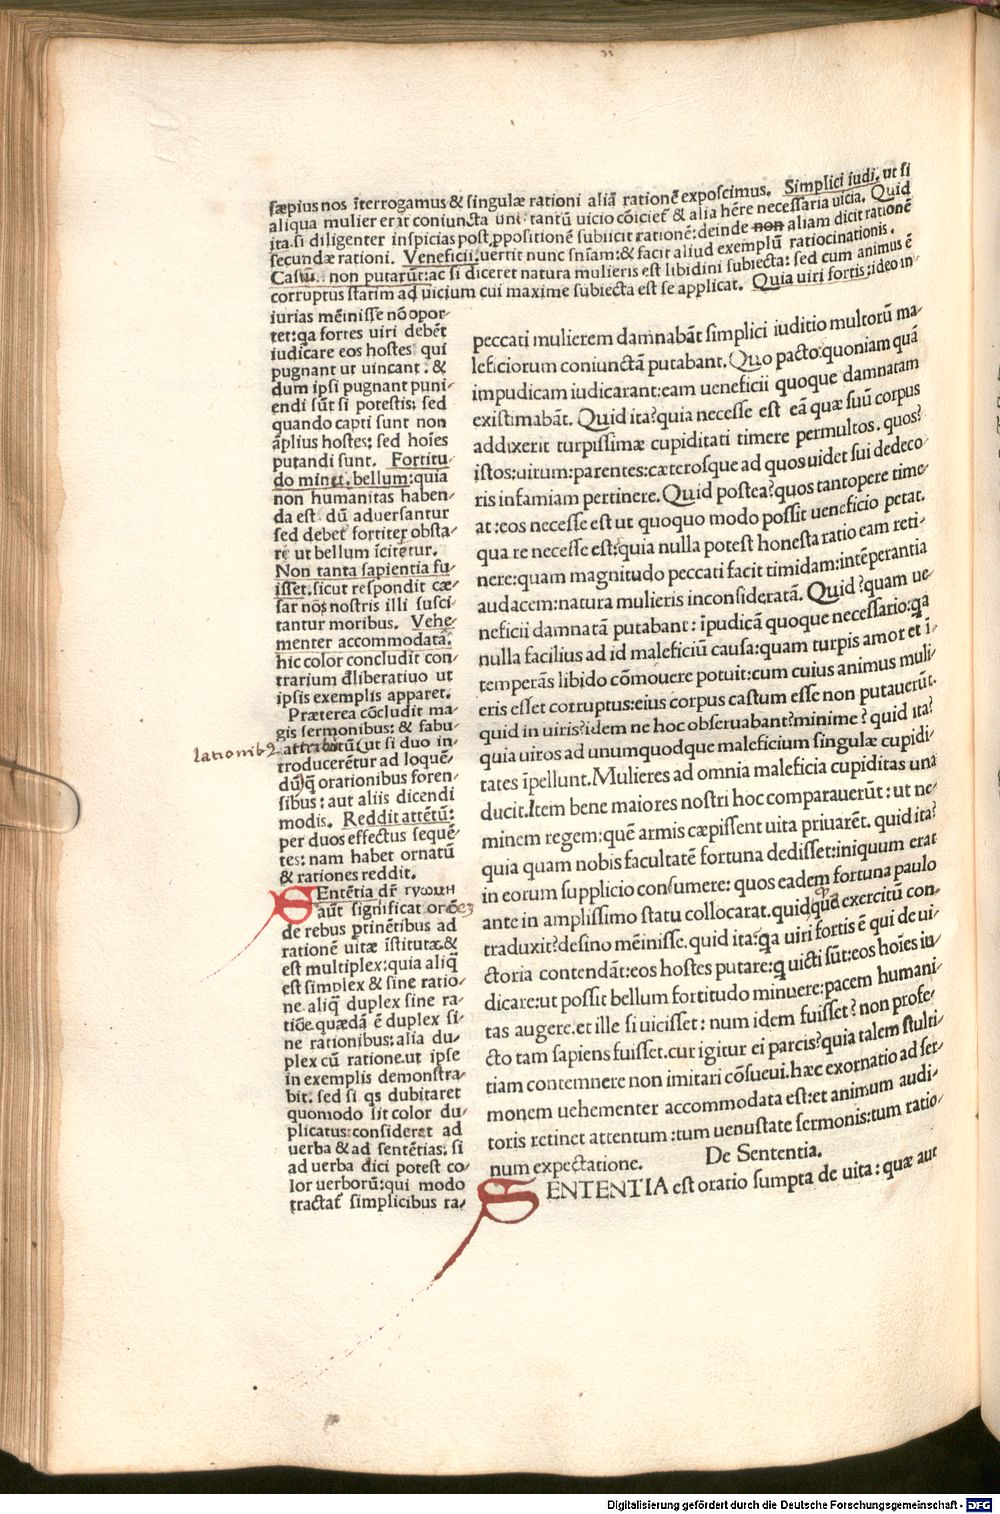 sæpius nos īterrogamus & singulæ rationi aliā rationē exposcimus. Simplici iudi. ut si
aliqua mulier erit coniuncta uni tantū uicio cōiciet̄ & alia hēre necessaria uicia. Quid
ita. si diligenter inspicias post ꝓpositionē subiicit rationē: deinde non aliam dicit rationē
secundæ rationi. Veneficii. uertit nunc sn̄iam: & facit aliud exemplū ratiocinationis.
Castū. non putarūt: ac si diceret natura mulieris est libidini subiecta: sed cum animus ē
corruptus statim ad uicium cui maxime subiecta est se applicat. Quia uiri fortis: ideo in-
iurias mēinisse nō opor-
tet: q̄a fortes uiri debēt
iudicare eos hostes qui
pugnant ut uincant: &
dum ipsi pugnant puni-
endi sūt si potestis: sed
quando capti sunt non
āplius hostes: sed hoīes
putandi sunt. Fortitu-
do minu. bellum: quia
non humanitas haben-
da est. dū aduersantur
sed debet fortiter obsta-
re ut bellum īcitetur.
Non tanta sapientia fu-
isset. sicut respondit cæ-
sar nos nostris illi susci-
tantur moribus. Vehe-
menter accommodatā.
hic color concludit con-
trarium đliberatiuo ut
ipsis exemplis apparet.
Præterea cōcludit ma-
gis sermonibus: & fabu-
lationib9
attrabitū ut si duo in-
troducerētur ad loquē-
dū q̄ orationibus foren-
sibus: aut aliis dicendi
modis. Reddit attētū:
per duos effectus sequē-
tes: nam habet ornatū
& rationes reddit.
SEntētia dr̄ γνώμη
aūt significat orōēz
de rebus ꝑtinētibus ad
rationē uitæ īstitutæ. &
est multiplex: quia aliq̄
est simplex & sine ratio-
ne. aliq̄ duplex sine ra-
tiōe. quædā ē duplex si-
ne rationibus: alia du-
plex cū ratione. ut ipse
in exemplis demonstra-
bit. sed si qs dubitaret
quomodo sit color du-
plicatus: consideret ad
uerba & ad sentētias: si
ad uerba dici potest co-
lor uerborū: qui modo
tractat̄ simplicibus ra-
peccati mulierem damnabāt simplici iuditio multorū ma-
leficiorum coniunctā putabant. Quo pacto: quoniam quā
impudicam iudicarant: eam ueneficii quoque damnatam
existimabāt. Quid ita? quia necesse est eā quæ suū corpus
addixerit turpissimæ cupiditati timere permultos. quos?
istos: uirum: parentes: cæterosque ad quos uidet sui dedeco-
ris infamiam pertinere. Quid postea? quos tantopere time-
at: eos necesse est ut quoquo modo possit ueneficio petat.
qua re necesse est: quia nulla potest honesta ratio eam reti-
nere: quam magnitudo peccati facit timidam: intēperantia
audacem: natura mulieris inconsideratā. Quid? quam ue-
neficii damnatā putabant: īpudicā quoque necessario: q̄a
nulla facilius ad id maleficiū causa: quam turpis amor et ī-
temperās libido cōmouere potuit: cum cuius animus muli-
eris esset corruptus: eius corpus castum esse non putauerūt.
quid in uiris? idem ne hoc obseruabant? minime? quid ita?
quia uiros ad unumquodque maleficium singulæ cupidi-
tates īpellunt. Mulieres ad omnia maleficia cupiditas una
ducit. Item bene maiores nostri hoc comparauerūt: ut ne-
minem regem: quē armis cæpissent uita priuarēt. quid ita?
quia quam nobis facultatē fortuna dedisset: iniquum erat
in eorum supplicio consumere: quos eadem fortuna paulo
ante in amplissimo statu collocarat. quid que exercitū con-
traduxit? desino mēinisse. quid ita: q̄a uiri fortis ē qui de ui-
ctoria contendāt: eos hostes putare: q̄ uicti sūt: eos hoīes iu-
dicare: ut possit bellum fortitudo minuere: pacem humani-
tas augere. et ille si uicisset: num idem fuisset? non profe-
cto tam sapiens fuisset. cur igitur ei parcis? quia talem stulti-
tiam contemnere non imitari cōsueui. hæc exornatio ad ser-
monem uehementer accommodata est: et animum audi-
toris retinet attentum: tum uenustate sermonis: tum ratio-
num expectatione. De Sententia.
SENTENTIA est oratio sumpta de uita: quæ aut
Digitalisierung gefördert durch die Deutsche Forschungsgemeinschaft - DFG